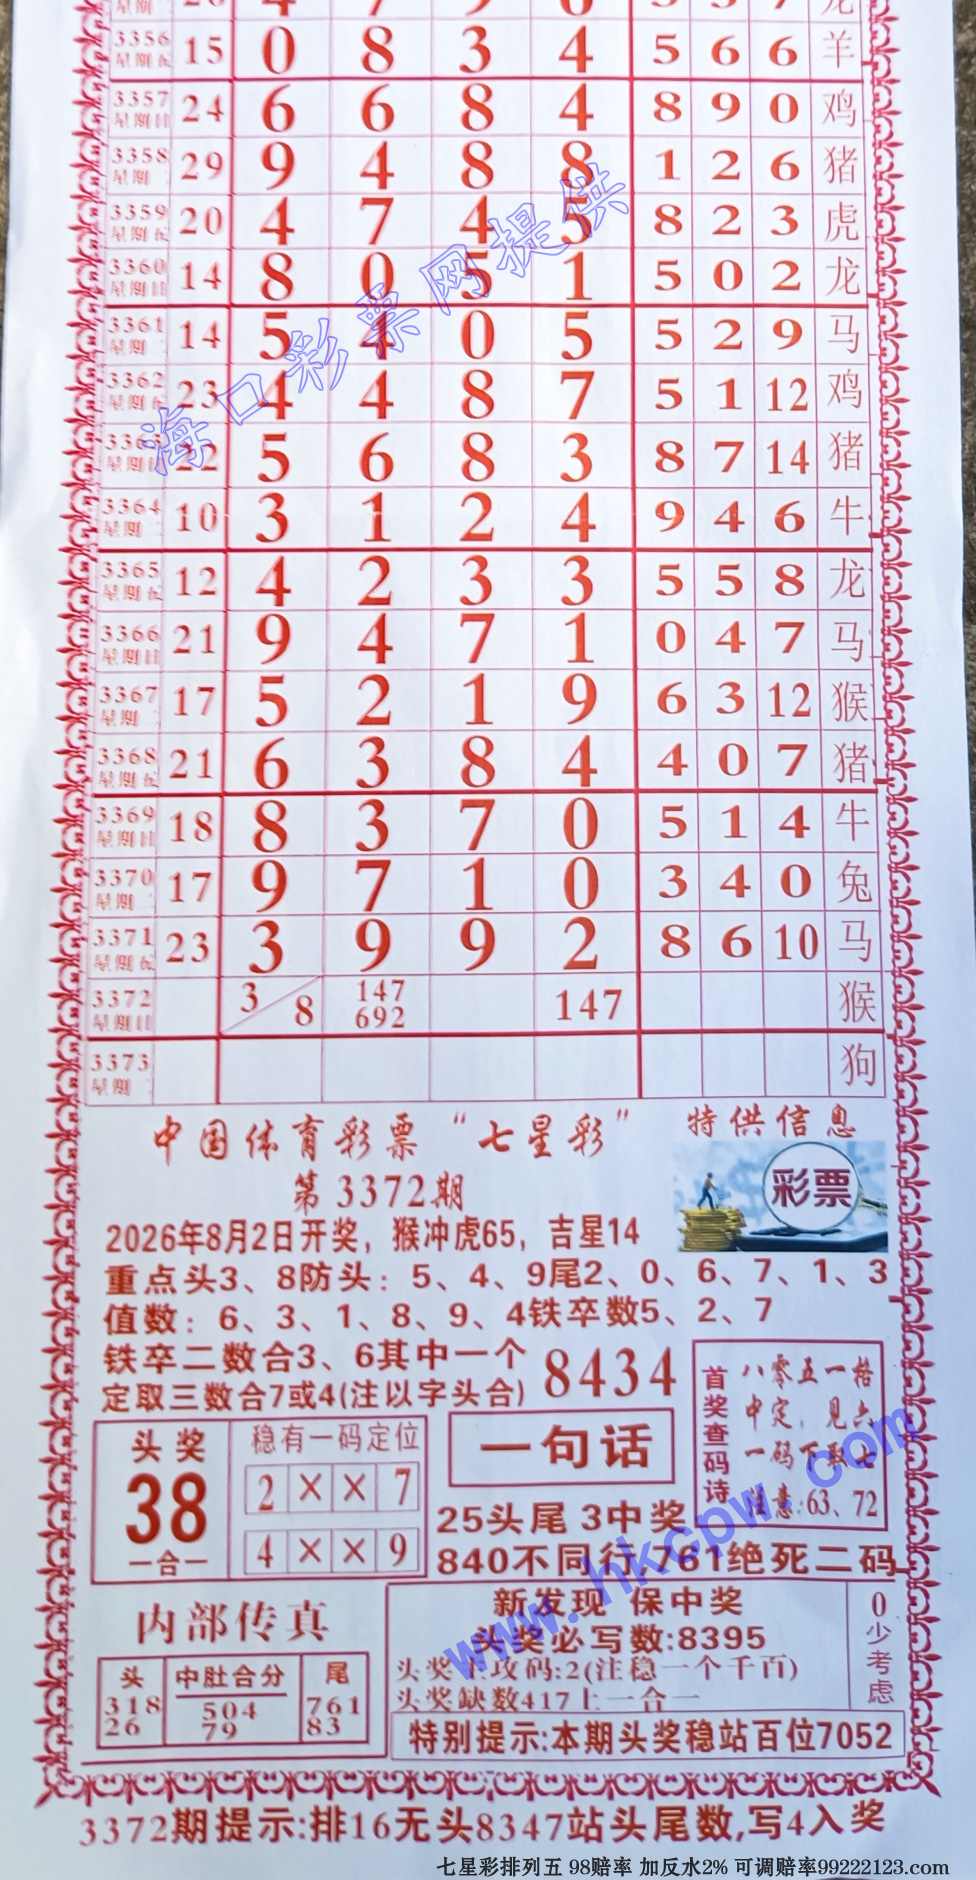 3356 星期五 15 0 8 3 4 5 6 6 羊
3357 星期日 24 6 6 8 4 8 9 0 鸡
3358 星期二 29 9 4 8 8 1 2 6 猪
3359 星期五 20 4 7 4 5 8 2 3 虎
3360 星期日 14 8 0 5 1 5 0 2 龙
3361 星期二 14 5 4 0 5 5 2 9 马
3362 星期五 23 4 4 8 7 5 1 12 鸡
3363 星期日 22 5 6 8 3 8 7 14 猪
3364 星期二 10 3 1 2 4 9 4 6 牛
3365 星期五 12 4 2 3 3 5 5 8 龙
3366 星期日 21 9 4 7 1 0 4 7 马
3367 星期二 17 5 2 1 9 6 3 12 猴
3368 星期五 21 6 3 8 4 4 0 7 猪
3369 星期日 18 8 3 7 0 5 1 4 牛
3370 星期二 17 9 7 1 0 3 4 0 兔
3371 星期五 23 3 9 9 2 8 6 10 马
3372 星期日 3 8 147 692 147 猴
3373 星期二 狗
海口彩票网提供
中国体育彩票“七星彩” 特供信息
第3372期
彩票
2026年8月2日开奖，猴冲虎65，吉星14
重点头3、8防头：5、4、9尾2、0、6、7、1、3
值数：6、3、1、8、9、4铁卒数5、2、7
铁卒二数合3、6其中一个
定取三数合7或4(注以字头合)
8434
首奖查码诗
八零五一格
中定，见六
一码下取七
注意:63、72
头奖
38
一合一
稳有一码定位
2 × × 7
4 × × 9
一句话
25头尾 3中奖
840不同行,761绝死二码
www.hkcpw.com
内部传真
头 中肚合分 尾
318 504 761
26 79 83
新发现 保中奖
头奖必写数:8395
头奖主攻码:2(注稳一个千百)
头奖缺数417上一合一
0少考虑
特别提示:本期头奖稳站百位7052
3372期提示:排16无头8347站头尾数,写4入奖
七星彩排列五 98赔率 加反水2% 可调赔率99222123.com